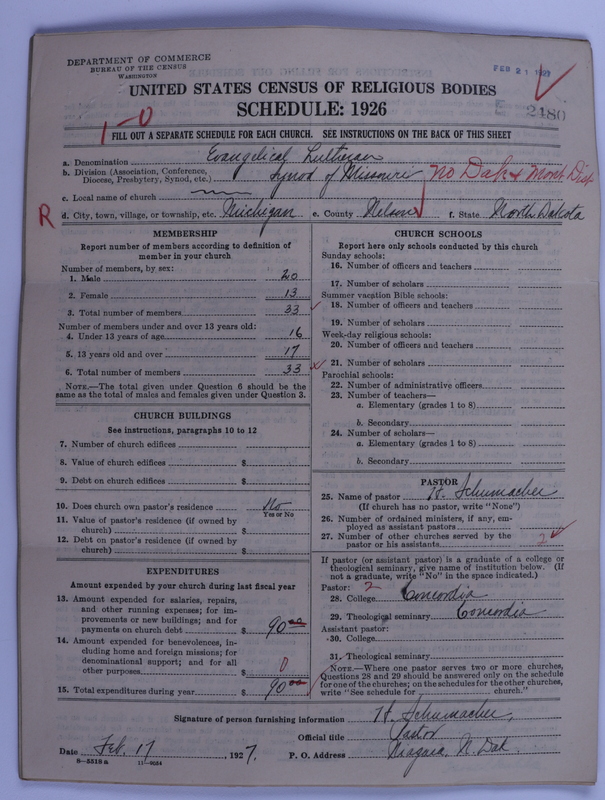 DEPARTMENT OF COMMERCE
BUREAU OF THE CENSUS
WASHINGTON
FEB 21 1927
UNITED STATES CENSUS OF RELIGIOUS BODIES
SCHEDULE: 1926
E 2480
1-0
FILL OUT A SEPARATE SCHEDULE FOR EACH CHURCH. SEE INSTRUCTIONS ON THE BACK OF THIS SHEET
a. Denomination Evangelical Lutheran
b. Division (Association, Conference, Diocese, Presbytery, Synod, etc.) Synod of Missouri No Dak & Mont Dist
c. Local name of church
R d. City, town, village, or township, etc. Michigan e. County Nelson f. State North Dakota
MEMBERSHIP
Report number of members according to definition of
member in your church
Number of members, by sex:
1. Male 20
2. Female 13
3. Total number of members 33
Number of members under and over 13 years old:
4. Under 13 years of age 16
5. 13 years old and over 17
6. Total number of members 33
NOTE.—The total given under Question 6 should be the
same as the total of males and females given under Question 3.
CHURCH BUILDINGS
See instructions, paragraphs 10 to 12
7. Number of church edifices
8. Value of church edifices $
9. Debt on church edifices $
10. Does church own pastor's residence No
Yes or No
11. Value of pastor's residence (if owned by
church) $
12. Debt on pastor's residence (if owned by
church) $
EXPENDITURES
Amount expended by your church during last fiscal year
13. Amount expended for salaries, repairs,
and other running expenses; for im-
provements or new buildings; and for
payments on church debt $ 90 00
14. Amount expended for benevolences, in-
cluding home and foreign missions; for
denominational support; and for all
other purposes $ 0
15. Total expenditures during year $ 90 00
CHURCH SCHOOLS
Report here only schools conducted by this church
Sunday schools:
16. Number of officers and teachers
17. Number of scholars
Summer vacation Bible schools:
18. Number of officers and teachers
19. Number of scholars
Week-day religious schools:
20. Number of officers and teachers
21. Number of scholars
Parochial schools:
22. Number of administrative officers
23. Number of teachers—
a. Elementary (grades 1 to 8)
b. Secondary
24. Number of scholars—
a. Elementary (grades 1 to 8)
b. Secondary
PASTOR
25. Name of pastor H. Schumacher
(If church has no pastor, write "None")
26. Number of ordained ministers, if any, em-
ployed as assistant pastors
27. Number of other churches served by the
pastor or his assistants 2
If pastor (or assistant pastor) is a graduate of a college or
theological seminary, give name of institution below. (If
not a graduate, write "No" in the space indicated.)
Pastor: 2
28. College Concordia
29. Theological seminary Concordia
Assistant pastor:
30. College
31. Theological seminary
NOTE.—Where one pastor serves two or more churches,
Questions 28 and 29 should be answered on the schedule
for one of the churches; on the schedules for the other churches,
write "See schedule for church."
Signature of person furnishing information H. Schumacher,
Official title Pastor
Date Feb. 17, 1927. P. O. Address Niagara, N. Dak.
8-5518a 11-9054